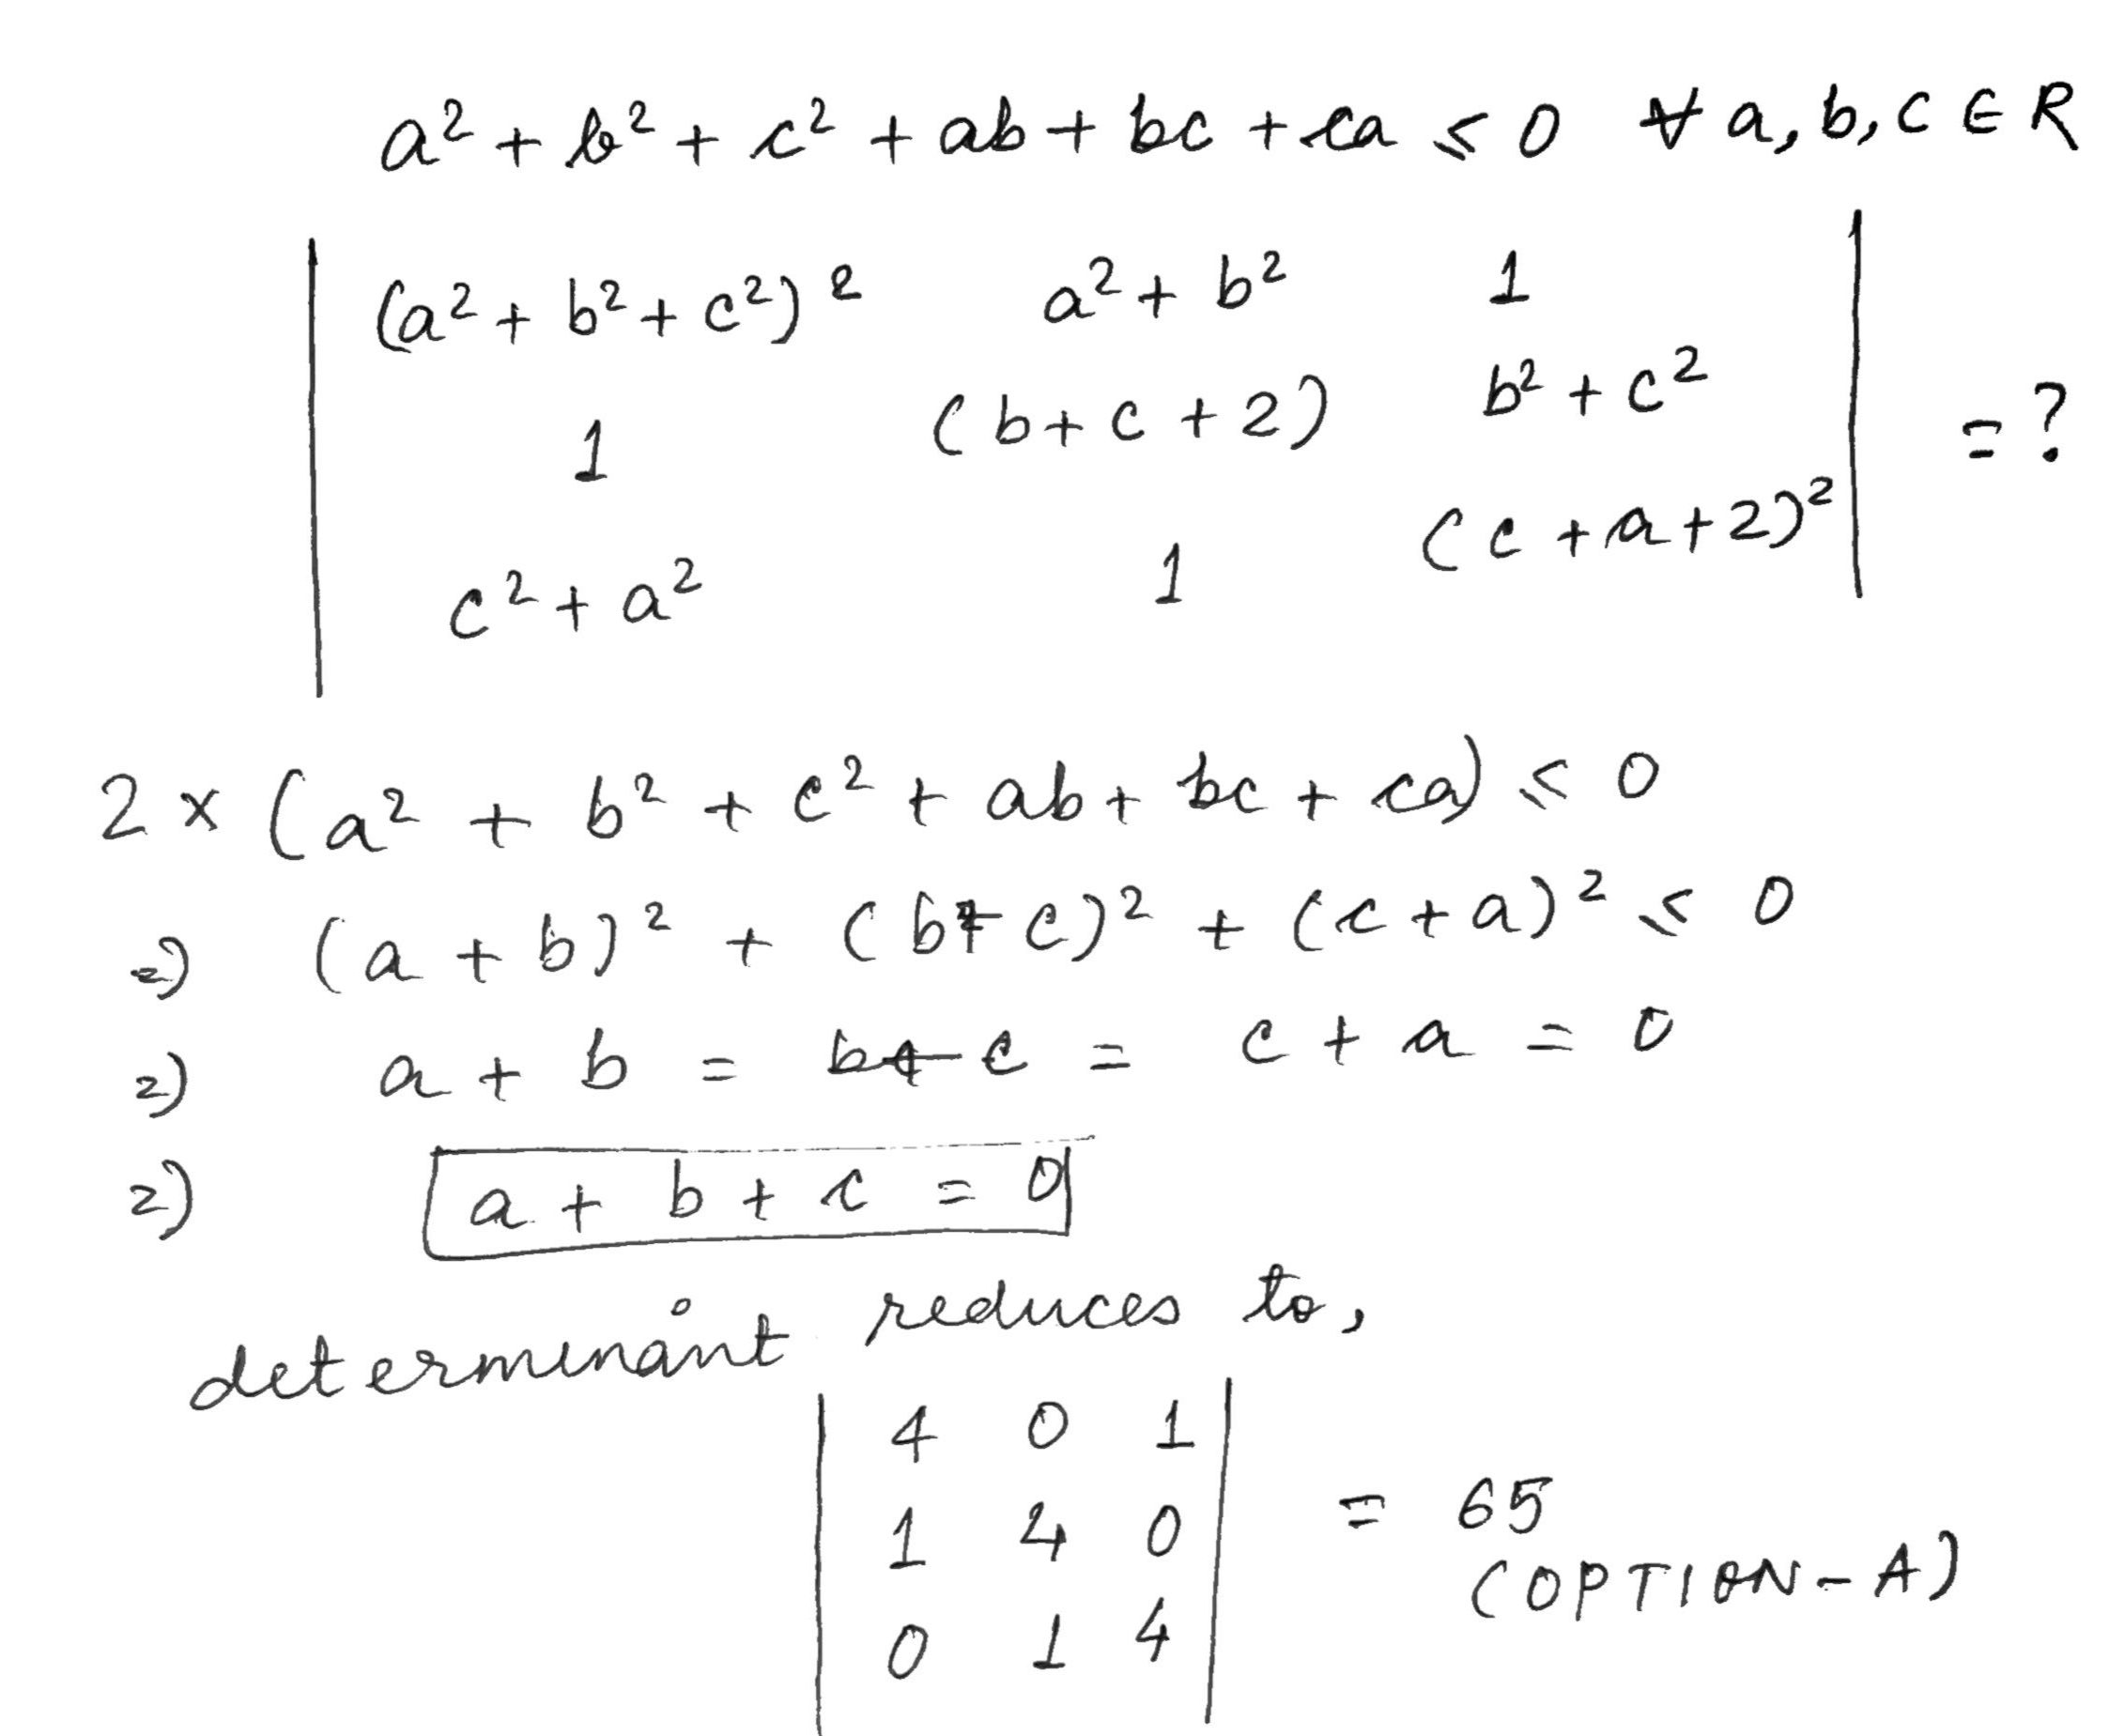 a² + b² + c² + ab + bc + ca ≤ 0 ∀ a, b, c ∈ R
| (a² + b² + c²)² a² + b² 1 |
| 1 (b + c + 2) b² + c² | = ?
| c² + a² 1 (c + a + 2)² |
2 × (a² + b² + c² + ab + bc + ca) ≤ 0
⇒ (a + b)² + (b + c)² + (c + a)² ≤ 0
⇒ a + b = b + c = c + a = 0
⇒ a + b + c = 0
determinant reduces to,
| 4 0 1 |
| 1 4 0 | = 65
| 0 1 4 | (OPTION - A)